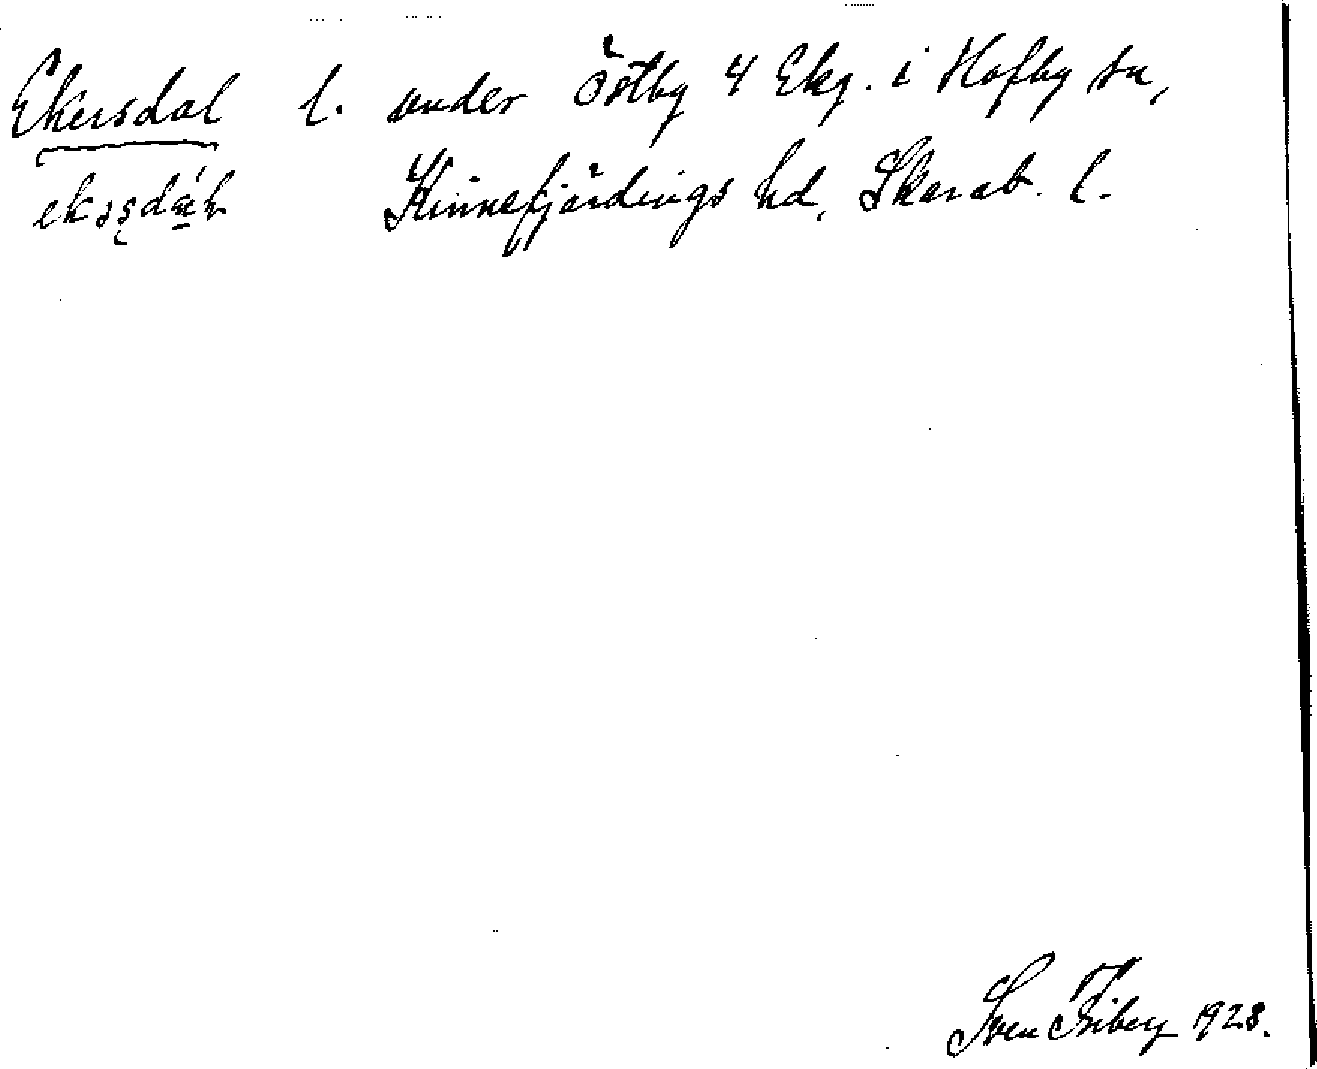 Ekersdal l. under Östby 4 Ekg. i Hofby sn,
Kinnefjärdings hd, Skarab. l.
Sven Friberg 1928.